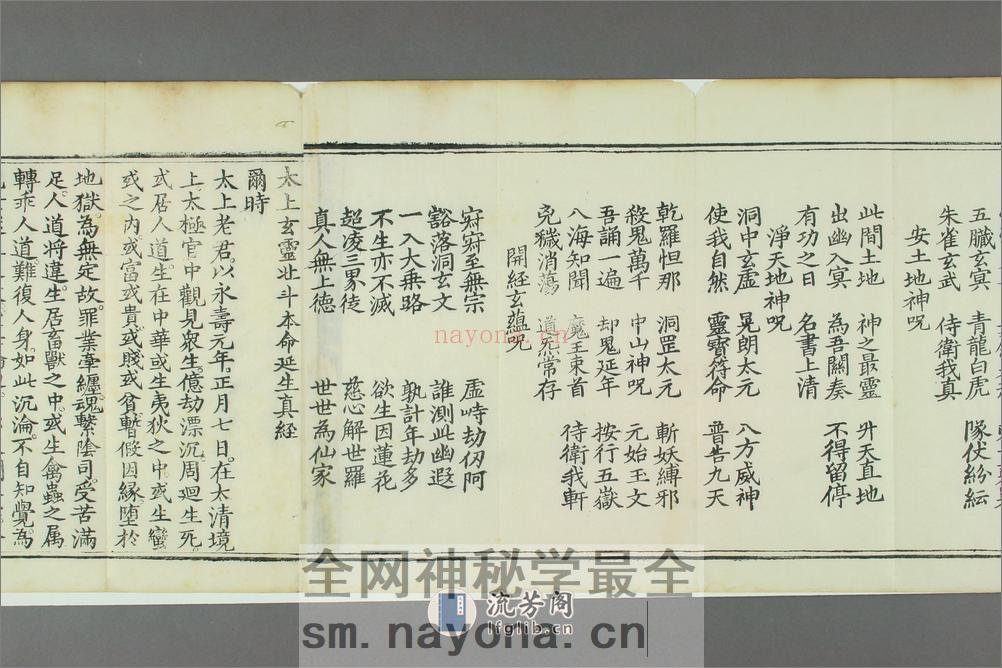 五臟玄冥 青龍白虎 隊仗紛紜
朱雀玄武 侍衛我真
安土地神呪
此間土地 神之最靈 升天直地
出幽入冥 為吾關奏 不得留停
有功之日 名書上清
淨天地神呪
洞中玄虛 晃朗太元 八方威神
使我自然 靈寶符命 普告九天
乾羅怛那 洞罡太元 斬妖縛邪
殺鬼萬千 中山神呪 元始玉文
吾誦一遍 却鬼延年 按行五嶽
八海知聞 魔王束首 侍衛我軒
兇穢消蕩 道炁常存
開經玄蘊呪
寂寂至無宗 虛峙劫仞阿
豁落洞玄文 誰測此幽遐
一入大乗路 孰計年劫多
不生亦不滅 欲生因蓮花
超凌三界徒 慈心解世羅
真人無上德 世世為仙家
太上玄靈北斗本命延生真經
爾時
太上老君以永壽元年正月七日在太清境
上太極宮中觀見衆生億劫漂沉周迴生死
或居人道生在中華或生夷狄之中或生蠻
或之內或富或貴或賤或貧暫假因緣墮於
地獄為無定故罪業牽纏魂繫陰司受苦滿
足人道將違生居畜獸之中或生禽蟲之属
轉乖人道難復人身如此沉淪不自知覺為
nayona.cn
全网神秘学最全
流芳阁
lfglib.cn
sm.nayona.cn